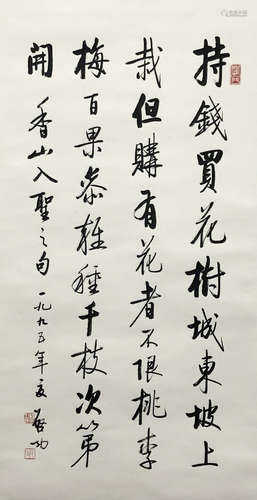 持錢買花樹城東坡上
栽但購有花者不限桃李
梅百果參雜種千枝次第
開 香山入聖之句 一九九五年夏 啟功